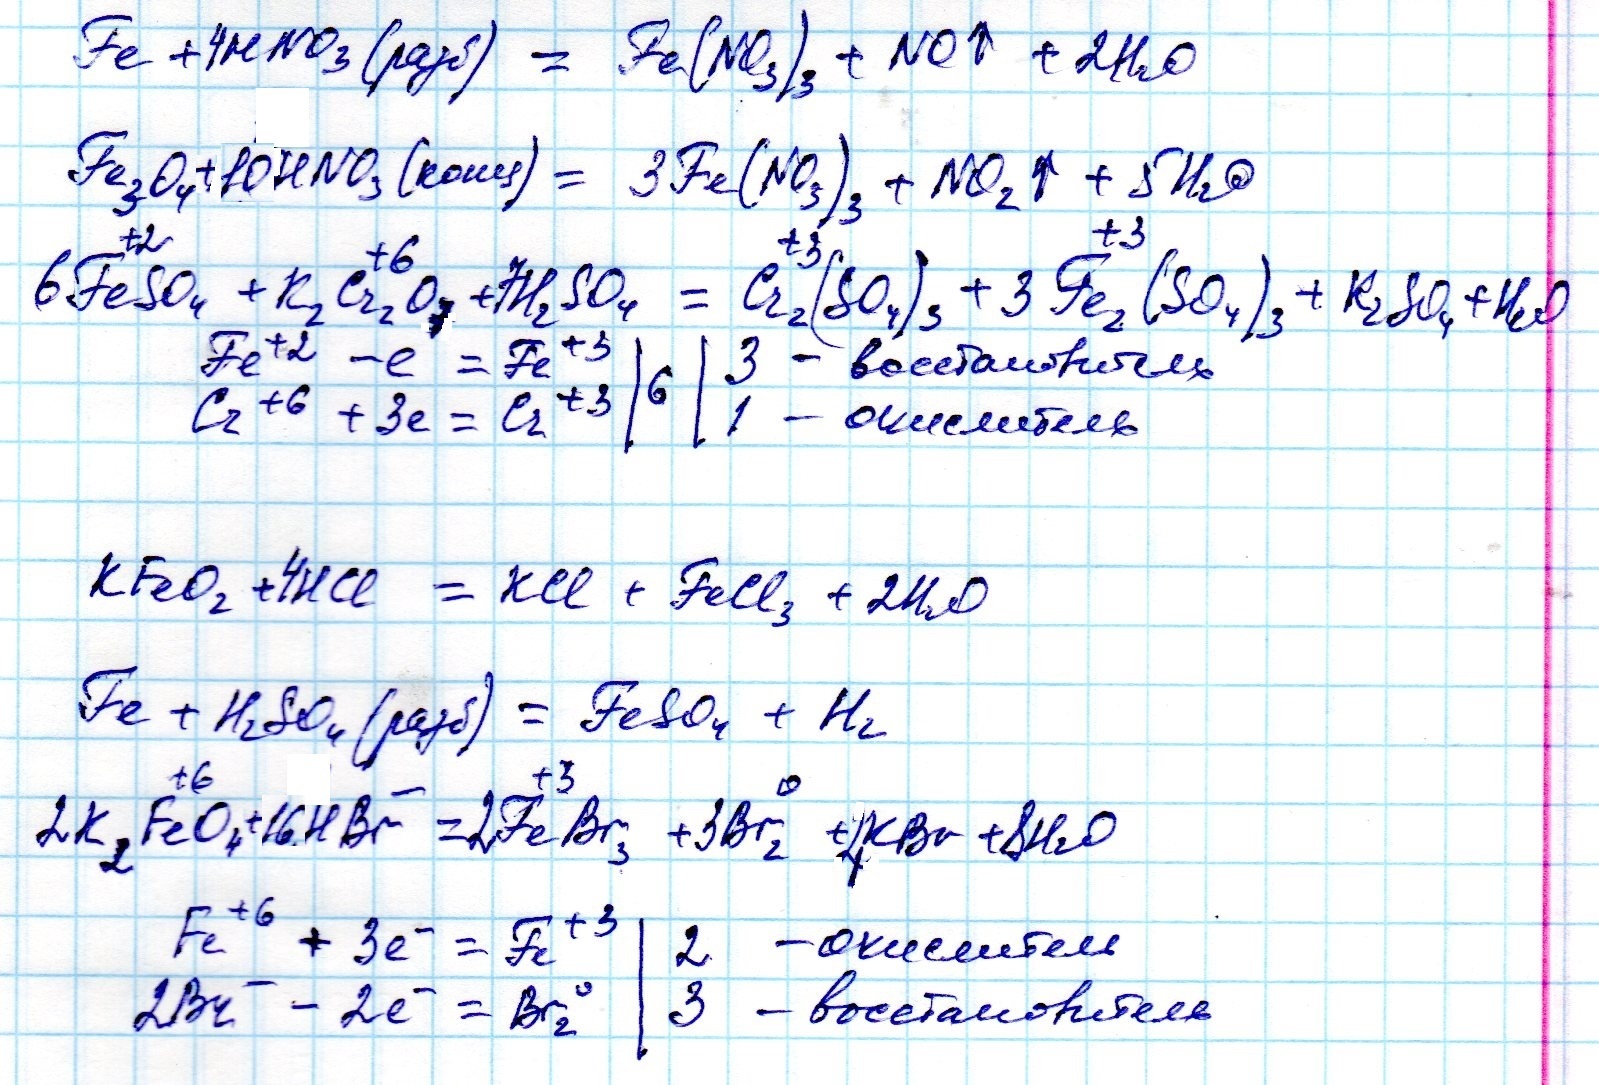 Fe + 4HNO₃ (разб) = Fe(NO₃)₃ + NO↑ + 2H₂O
Fe₃O₄ + 10HNO₃ (конц) = 3Fe(NO₃)₃ + NO₂↑ + 5H₂O
+2 +6 +3 +3
6FeSO₄ + K₂Cr₂O₇ + 7H₂SO₄ = Cr₂(SO₄)₃ + 3Fe₂(SO₄)₃ + K₂SO₄ + H₂O
Fe⁺² − e = Fe⁺³ | 6 | 3 − восстановитель
Cr⁺⁶ + 3e = Cr⁺³ | | 1 − окислитель
KFeO₂ + 4HCl = KCl + FeCl₃ + 2H₂O
Fe + H₂SO₄ (разб) = FeSO₄ + H₂
+6 − +3 0
2K₂FeO₄ + 16HBr = 2FeBr₃ + 3Br₂ + 4KBr + 8H₂O
Fe⁺⁶ + 3e⁻ = Fe⁺³ | 2 − окислитель
2Br⁻ − 2e⁻ = Br₂⁰ | 3 − восстановитель